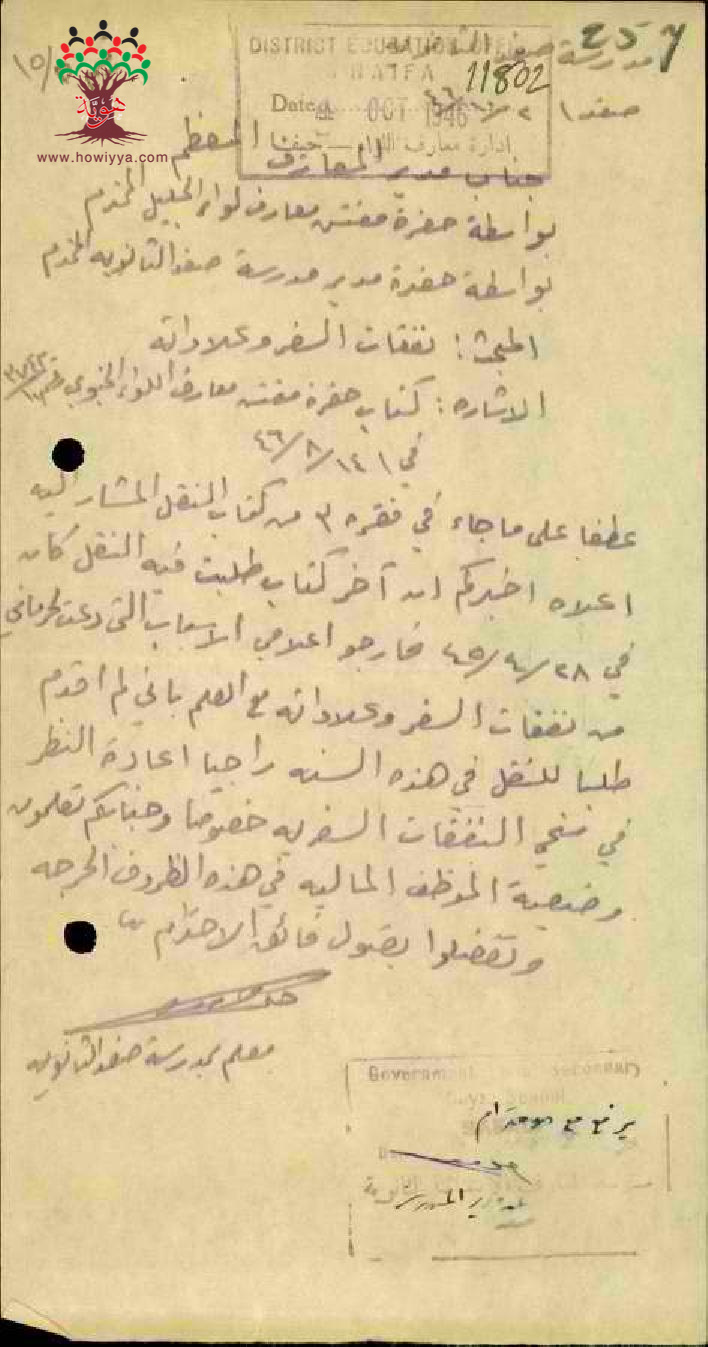 257
مدرسة صفد الثانوية
DISTRICT EDUCATION OFFICE
HAIFA
11802
Date OCT 1946
ادارة معارف اللواء - حيفا
صفد
هوية
www.howiyya.com
جناب مدير المعارف المعظم
بواسطة حضرة مفتش معارف لواء الجليل المحترم
بواسطة حضرة مدير مدرسة صفد الثانويه المحترم
المبحث: نفقات السفر وعلاواته
الاشاره: كتاب حضرة مفتش معارف اللواء الجنوبي رقم
في ١٤/٨/٤٦
عطفا على ما جاء في فقره ٣ من كتاب النقل المشار اليه
اعلاه اخبركم ان آخر كتاب طلبت فيه النقل كان
في ٢٨/٤/٤٥ فارجو اعلامي الاسباب التي دعت لحرماني
من نفقات السفر وعلاواته مع العلم باني لم اقدم
طلبا للنقل في هذه السنه راجيا اعادة النظر
في منحي النفقات السفريه خصوصا وجنابكم تعلمون
وضعية الموظف الماليه في هذه الظروف الحرجه
وتفضلوا بقبول فائق الاحترام
معلم بمدرسة صفد الثانويه
Government Secondary
Boys School
يرفع مع الاحترام
مدير المدرسة